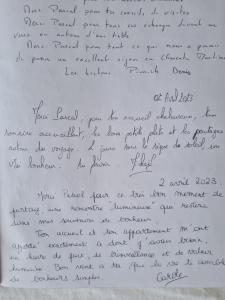 Merci Pascal pour tes conseils
Merci Pascal pour tous ces échanges
autour d'un table
Merci Pascal pour tout ce qui nous a permis
de passer un excellent séjour en Charente Maritime
Les bretons Denis
Avril 2023
Merci Pascal, pour ton accueil chaleureux, ton
sourire accueillant, tes bons petits plats et
autour du voyage. 2 jours sous le signe du soleil, un
vrai bonheur.
2 avril 2023
Merci Pascal pour ce très bon moment de
partage, une rencontre "lumineuse" qui restera
dans mes souvenirs de bonheur.
Ton accueil et ton appartement m'ont
apporté exactement ce dont j'avais besoin,
un havre de paix, de bienveillance et de valeur
humaine. Bon vent à toi, que la vie te comble
de bonheurs simples. Carole